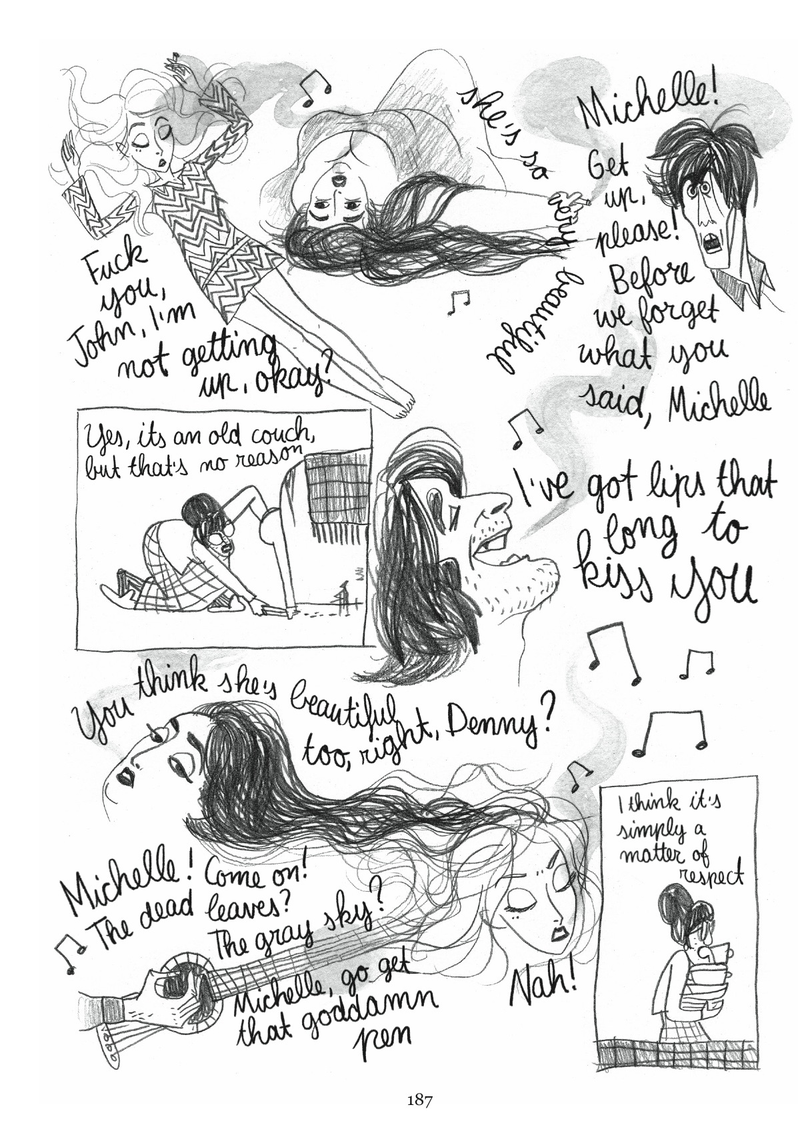 she's so
very beautiful
Michelle!
Get
up,
please!
Before
we forget
what you
said, Michelle
Fuck
you,
John, I'm
not getting
up, okay?
Yes, its an old couch,
but that's no reason
I've got lips that
long to
kiss you
You think she's beautiful
too, right, Denny?
Michelle! Come on!
The dead leaves?
The gray sky?
Michelle, go get
that goddamn
pen
Nah!
I think it's
simply a
matter of
respect
187